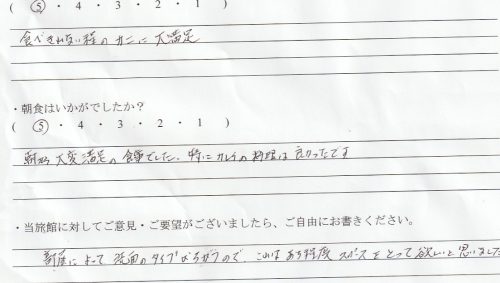 ( ⑤ ・ 4 ・ 3 ・ 2 ・ 1 )
食べきれない程のカニに大満足
・朝食はいかがでしたか？
( ⑤ ・ 4 ・ 3 ・ 2 ・ 1 )
朝から大変満足の食事でした、特にカレイの料理は良かったです
・当旅館に対してご意見・ご要望がございましたら、ご自由にお書きください。
部屋によって洗面のタイプがちがうので、これはある程度スペースをとって欲しいと思いました